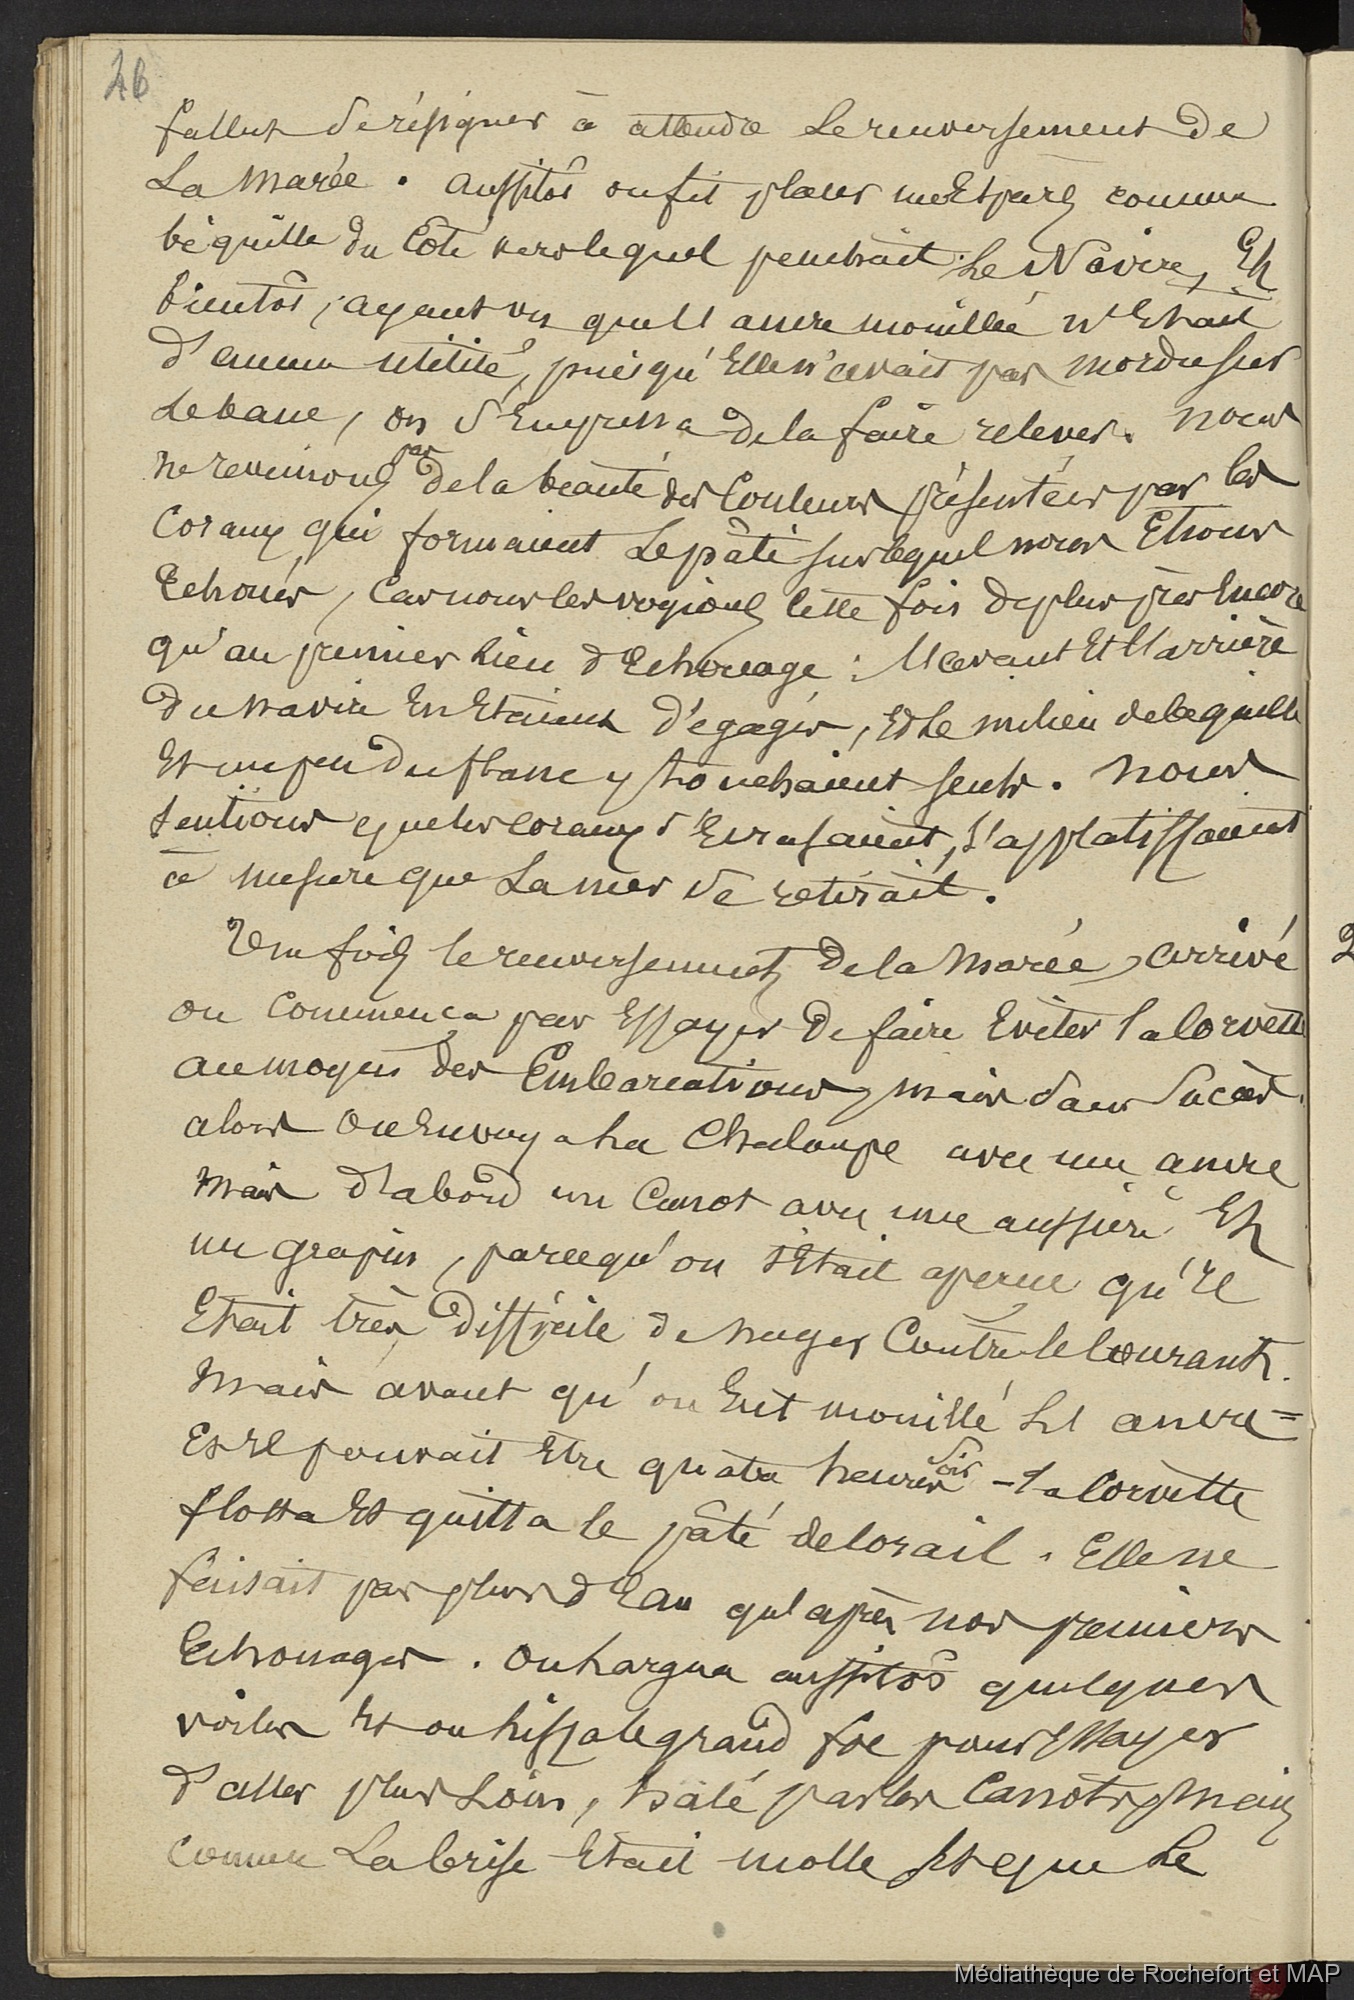 26
fallut se résigner à attendre le renversement de
La marée. aussitôt on fit placer une Espars comme
béquille du Côté vers lequel penchait le Navire, Et
bientôt, ayant vu que l'ancre mouillée n'Etait
d'aucune utilité, puisqu'Elle n'avait pas mordu sur
le banc, on s'Empressa de la faire relever. Nous
ne revenions pas de la beauté des Couleurs présentées par les
Coraux qui formaient le pâté sur lequel nous Etions
Echoués, Car nous les voyions cette fois de plus près Encore
qu'au premier lieu d'Echouage : l'avant Et l'arrière
du navire En Etaient dégagés, Et le milieu de la quille
Et un peu du flanc y touchaient seuls. Nous
sentions que les coraux s'Ecrasaient, s'applatissaient
à mesure que La mer se retirait.
Une fois le renversement de la Marée, arrivé
on commença par Essayer de faire Eviter la Corvette
au moyen des Embarcations, mais sans Succès.
alors on Envoya la Chaloupe avec une ancre
mais d'abord un Canot avec une aussière Et
un grapin, parcequ'on s'Etait aperçu qu'il
Etait très difficile de nager Contre le Courant.
Mais avant qu'on Eut mouillé l'ancre =
Et il pouvait Etre quatre heures soir - la Corvette
flotta Et quitta le pâté de Corail. Elle ne
faisait pas plus d'Eau qu'après nos premiers
Echouages. On largua aussitôt quelques
voiles Et on hissa le grand foc pour Essayer
d'aller plus Loin, halé par les Canots, Mais
comme La brise Etait molle Et que le
Médiathèque de Rochefort et MAP